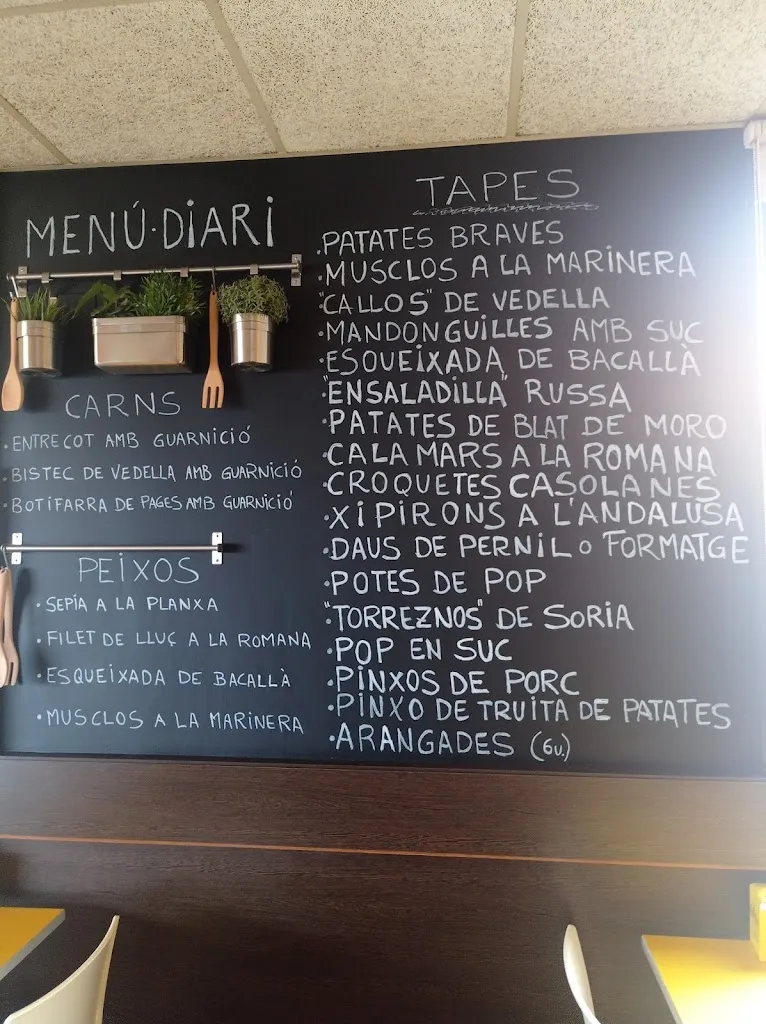 MENÚ·DIARI
CARNS
·ENTRECOT AMB GUARNICIÓ
·BISTEC DE VEDELLA AMB GUARNICIÓ
·BOTIFARRA DE PAGES AMB GUARNICIÓ
PEIXOS
·SEPIA A LA PLANXA
·FILET DE LLUÇ A LA ROMANA
·ESQUEIXADA DE BACALLÀ
·MUSCLOS A LA MARINERA
TAPES
·PATATES BRAVES
·MUSCLOS A LA MARINERA
·"CALLOS" DE VEDELLA
·MANDONGUILLES AMB SUC
·ESQUEIXADA DE BACALLÀ
·"ENSALADILLA" RUSSA
·PATATES DE BLAT DE MORO
·CALAMARS A LA ROMANA
·CROQUETES CASOLANES
·XIPIRONS A L'ANDALUSA
·DAUS DE PERNIL o FORMATGE
·POTES DE POP
·"TORREZNOS" DE SORIA
·POP EN SUC
·PINXOS DE PORC
·PINXO DE TRUITA DE PATATES
·ARANGADES (6u.)